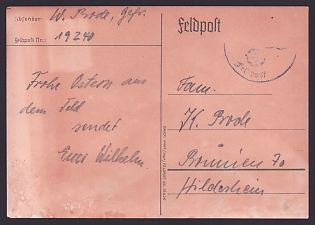 Absender: W. Brode, Gefr.
Feldpost Nr.: 19240
Frohe Ostern aus
dem Feld
sendet
Euer Wilhelm
Feldpost
Fam.
K. Brode
Hildesheim